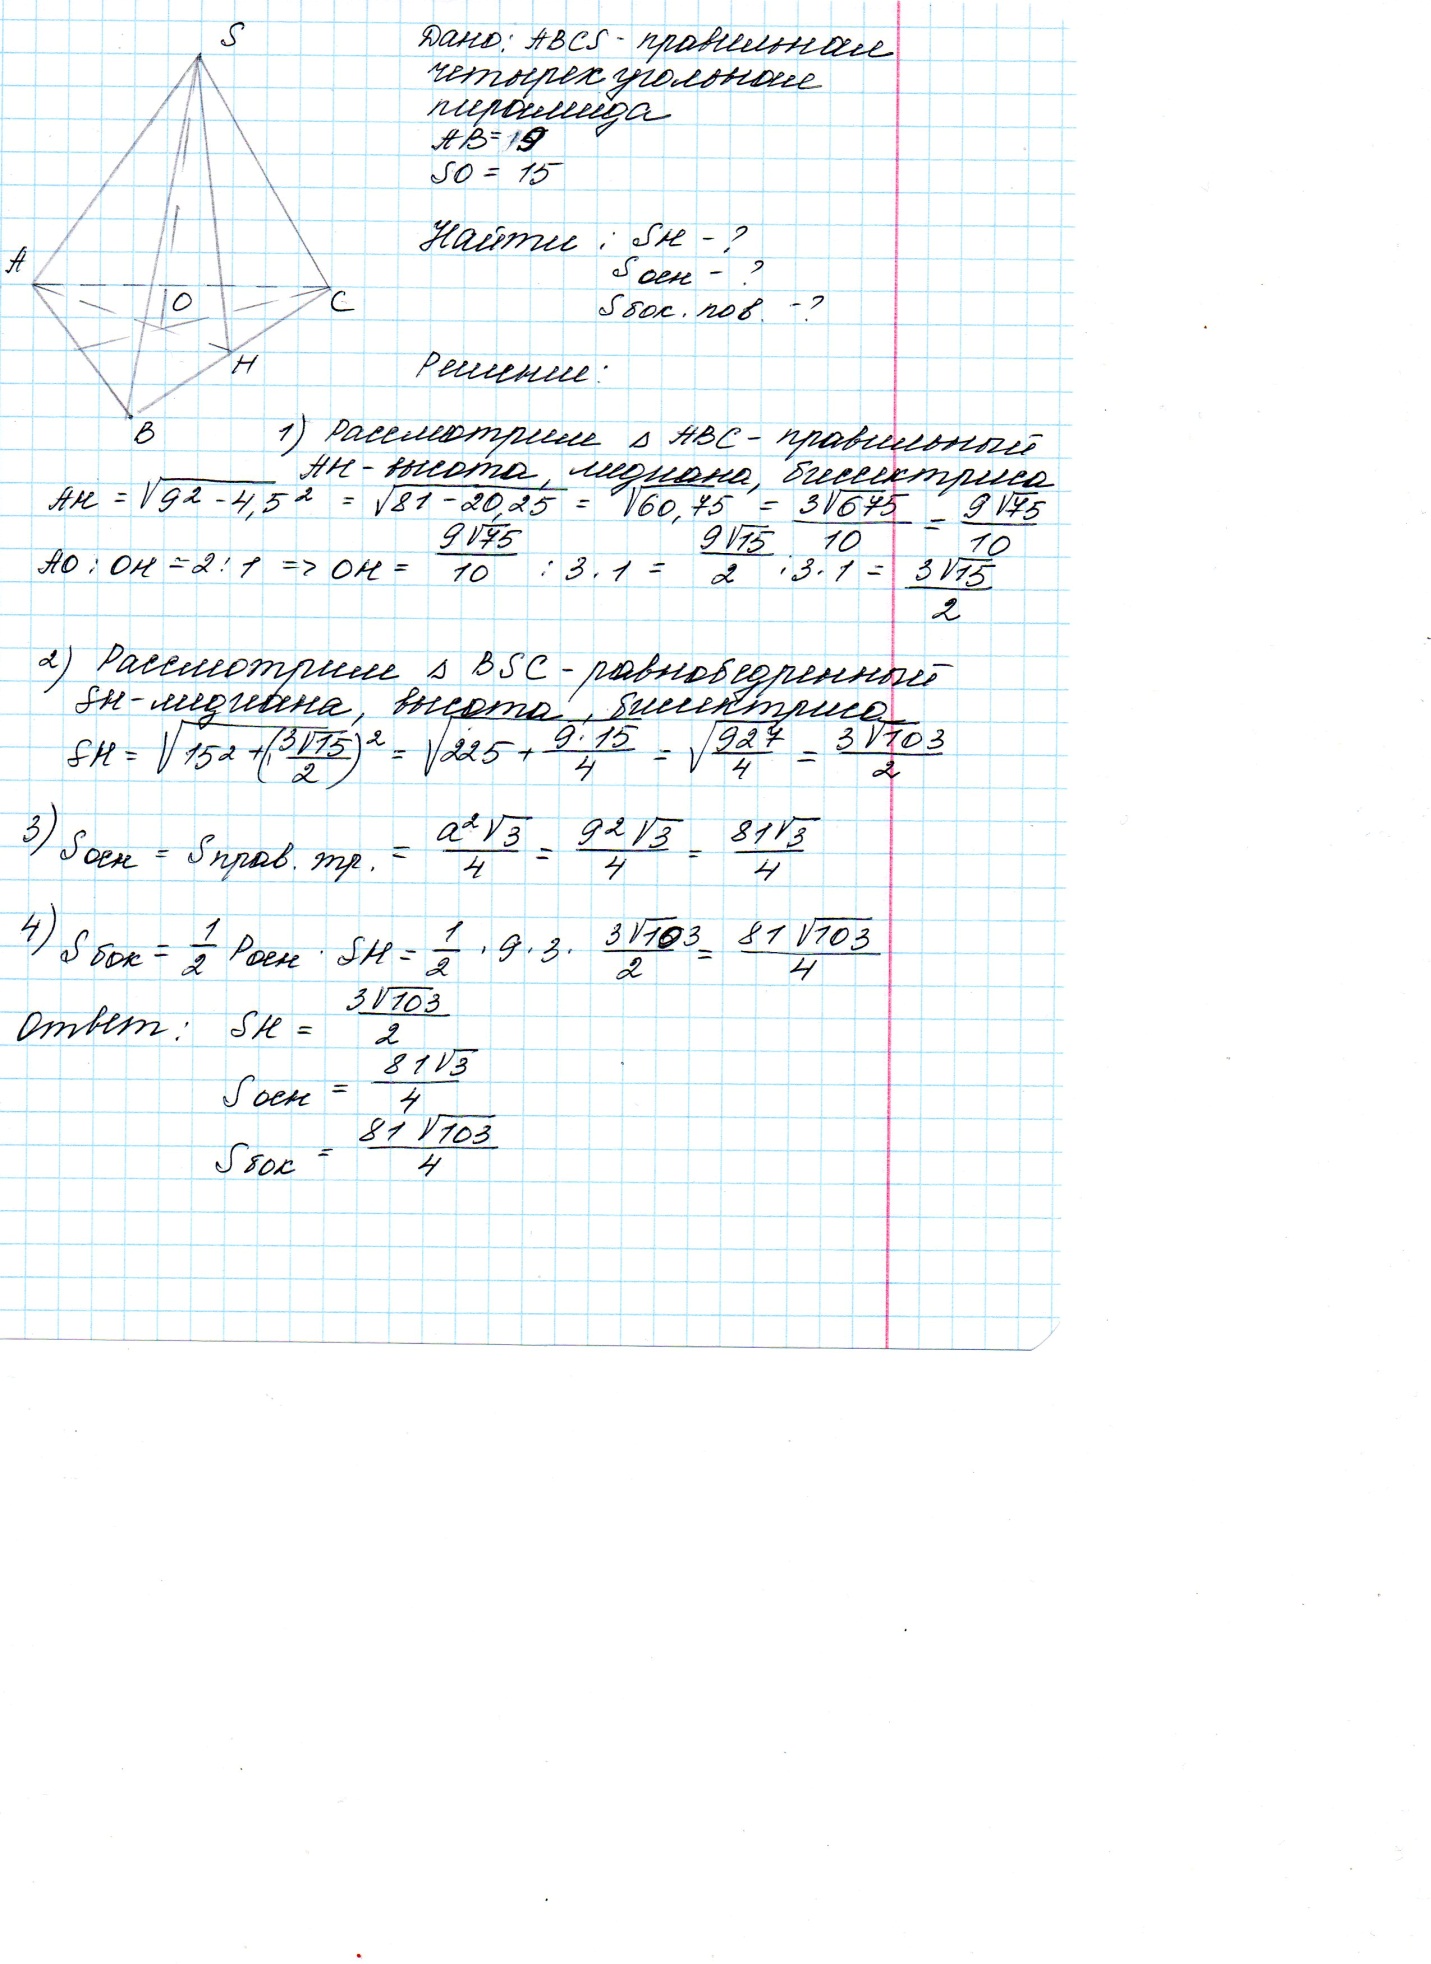 S
A
O
C
H
B
Дано: ABCS - правильная
четырехугольная
пирамида
AB = 9
SO = 15
Найти: SH - ?
Sосн - ?
Sбок. пов. - ?
Решение:
1) Рассмотрим △ ABC - правильный
AH - высота, медиана, биссектриса
AH = √(9² - 4,5²) = √(81 - 20,25) = √60,75 = 3√675/10 = 9√75/10
AO : OH = 2 : 1 => OH = 9√75/10 : 3 · 1 = 9√15/2 : 3 · 1 = 3√15/2
2) Рассмотрим △ BSC - равнобедренный
SH - медиана, высота, биссектриса
SH = √(15² + (3√15/2)²) = √(225 + 9·15/4) = √(927/4) = 3√103/2
3) Sосн = Sправ. тр. = a²√3/4 = 9²√3/4 = 81√3/4
4) Sбок = 1/2 Pосн · SH = 1/2 · 9 · 3 · 3√103/2 = 81√103/4
Ответ: SH = 3√103/2
Sосн = 81√3/4
Sбок = 81√103/4